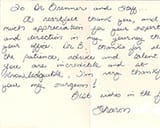 To Dr Bremners and Staff...
A heartfelt thank you, and
much appreciation for your expert
and direction in my journey th
your office. Dr B. thanks for al
the guidance, advice and talent
you are incredible and so
knowledgable, I'm very thankf
you my surgeon!
Best wishes in the f
Sharon